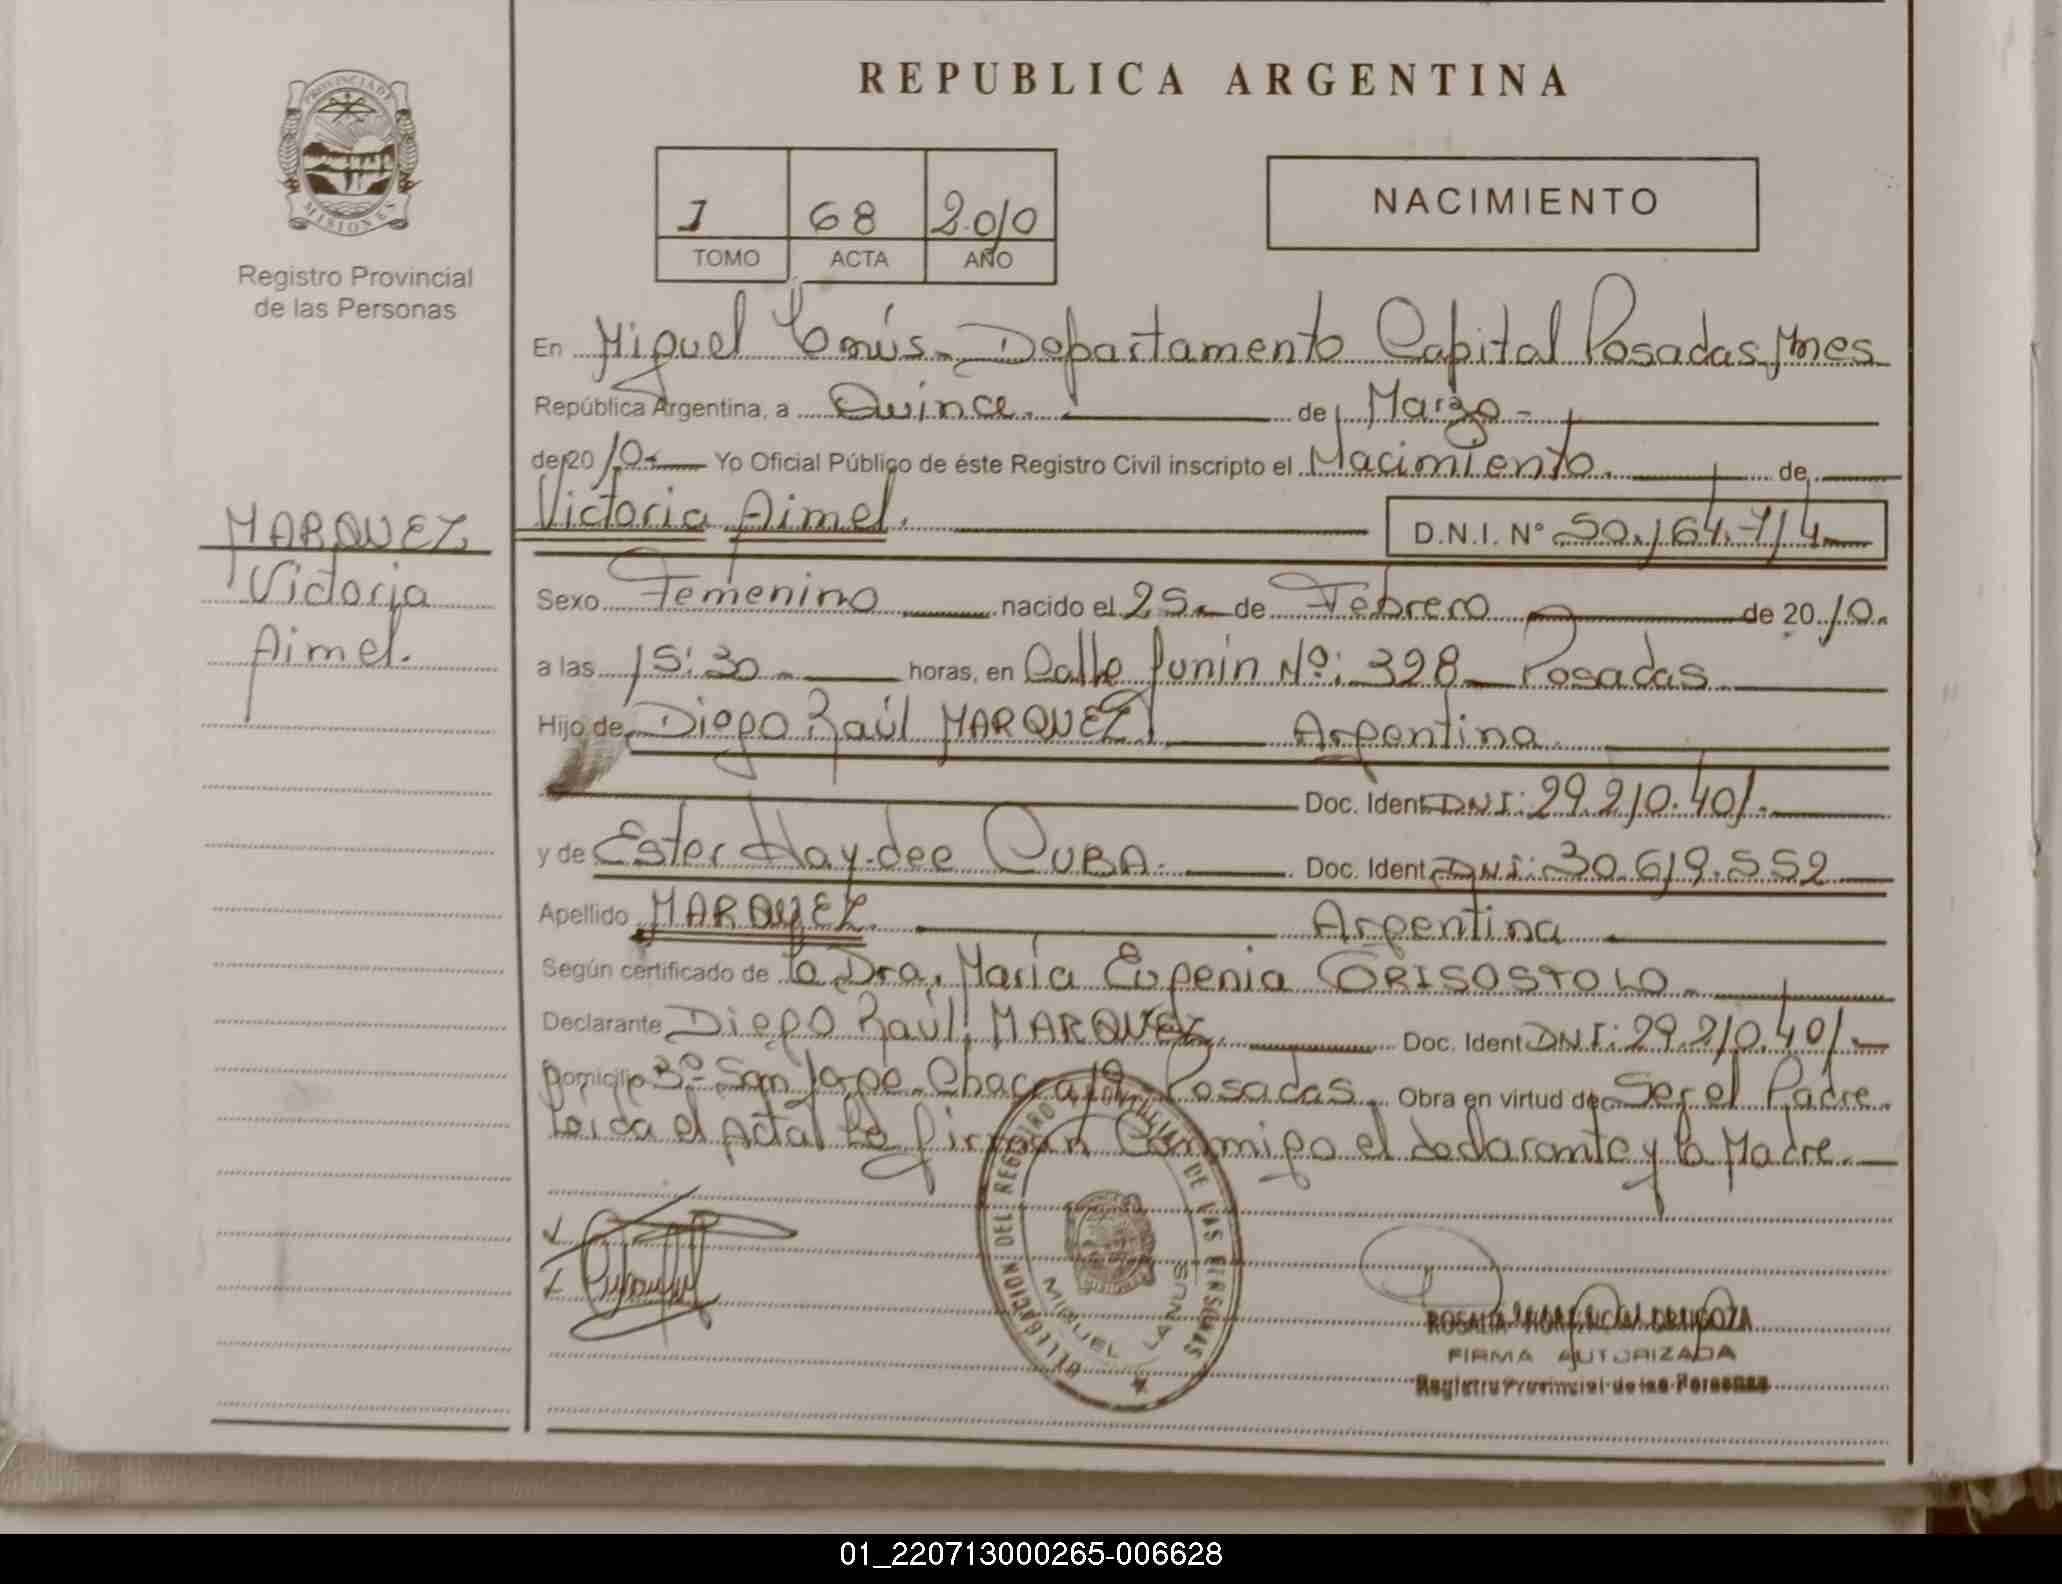 REPUBLICA ARGENTINA
PROVINCIA DE
MISIONES
Registro Provincial
de las Personas
1 68 2010
TOMO ACTA AÑO
NACIMIENTO
En Miguel Lanús. Departamento Capital Posadas, Mnes
República Argentina, a Quince. de Marzo -
de 20 10 Yo Oficial Público de éste Registro Civil inscripto el Nacimiento. de
Victoria Aimel. D.N.I. Nº 50.164.714
MARQUEZ
Victoria
Aimel.
Sexo Femenino nacido el 25 de Febrero de 20 10.
a las 15:30 horas, en Calle Junín Nº: 328 Posadas
Hijo de Diego Raúl MARQUEZ Argentina
Doc. Ident DNI: 29.210.401.
y de Ester Haydee CUBA. Doc. Ident DNI: 30.619.552
Apellido MARQUEZ. Argentina
Según certificado de la Dra. María Eugenia GRISOSTOLO
Declarante Diego Raúl MARQUEZ Doc. Ident DNI: 29.210.401
Domicilio Bº San Jorge Chacra Posadas. Obra en virtud de Ser el Padre.
Leida el Acta la firman Conmigo el declarante y la Madre.
DELEGACION DEL REGISTRO PROVINCIAL DE LAS PERSONAS
MIGUEL LANUS
FIRMA AUTORIZADA
Registro Provincial de las Personas
01_220713000265-006628